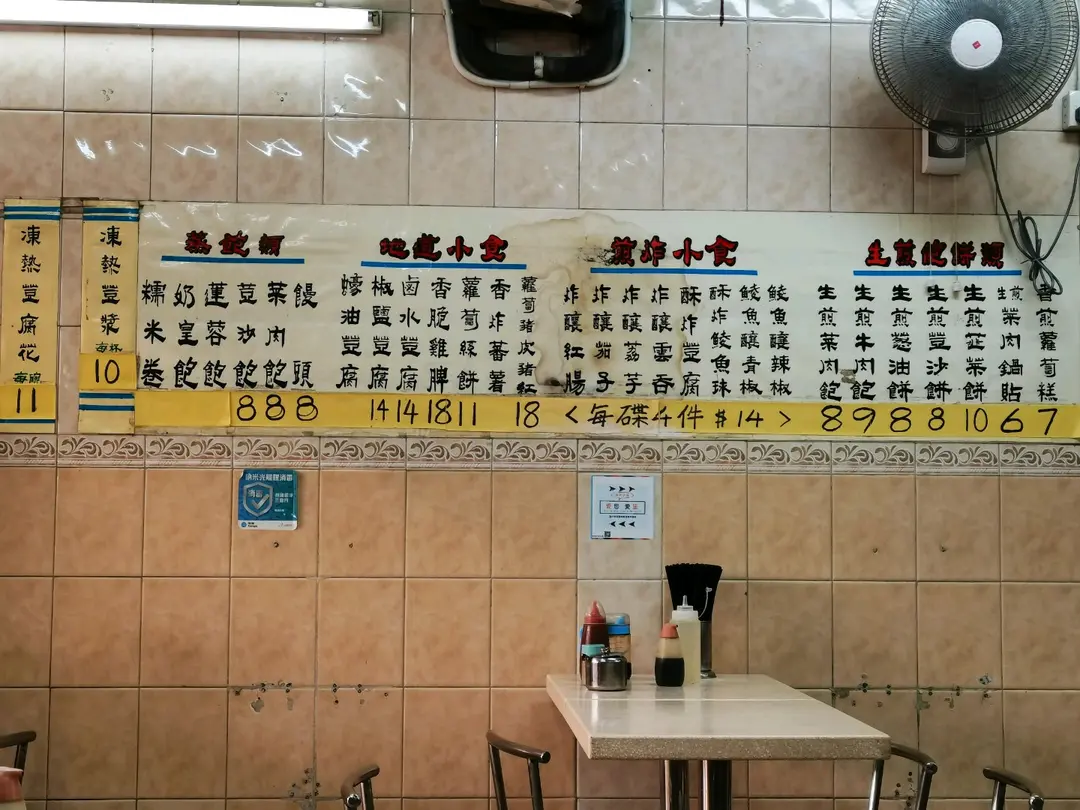 凍熱荳腐花
每碗
11
凍熱荳漿
每杯
10
蒸飽類
糯米卷
奶皇飽
蓮蓉飽
荳沙飽
菜肉飽
饅頭
8 8 8
地道小食
蠔油荳腐
椒鹽荳腐
鹵水荳腐
香脆雞脾
蘿蔔絲餅
香炸蕃薯
蘿蔔豬皮豬紅
14 14 18 11 18
煎炸小食
炸釀紅腸
炸釀茄子
炸釀荔芋
炸釀雲吞
酥炸荳腐
酥炸鯪魚珠
鯪魚釀青椒
鯪魚釀辣椒
<每碟4件 $14>
生煎飽餅類
生煎菜肉飽
生煎牛肉飽
生煎葱油餅
生煎豆沙餅
生煎韮菜餅
生煎菜肉鍋貼
香煎蘿蔔糕
8 9 8 8 10 6 7
納米光觸媒消毒
消毒